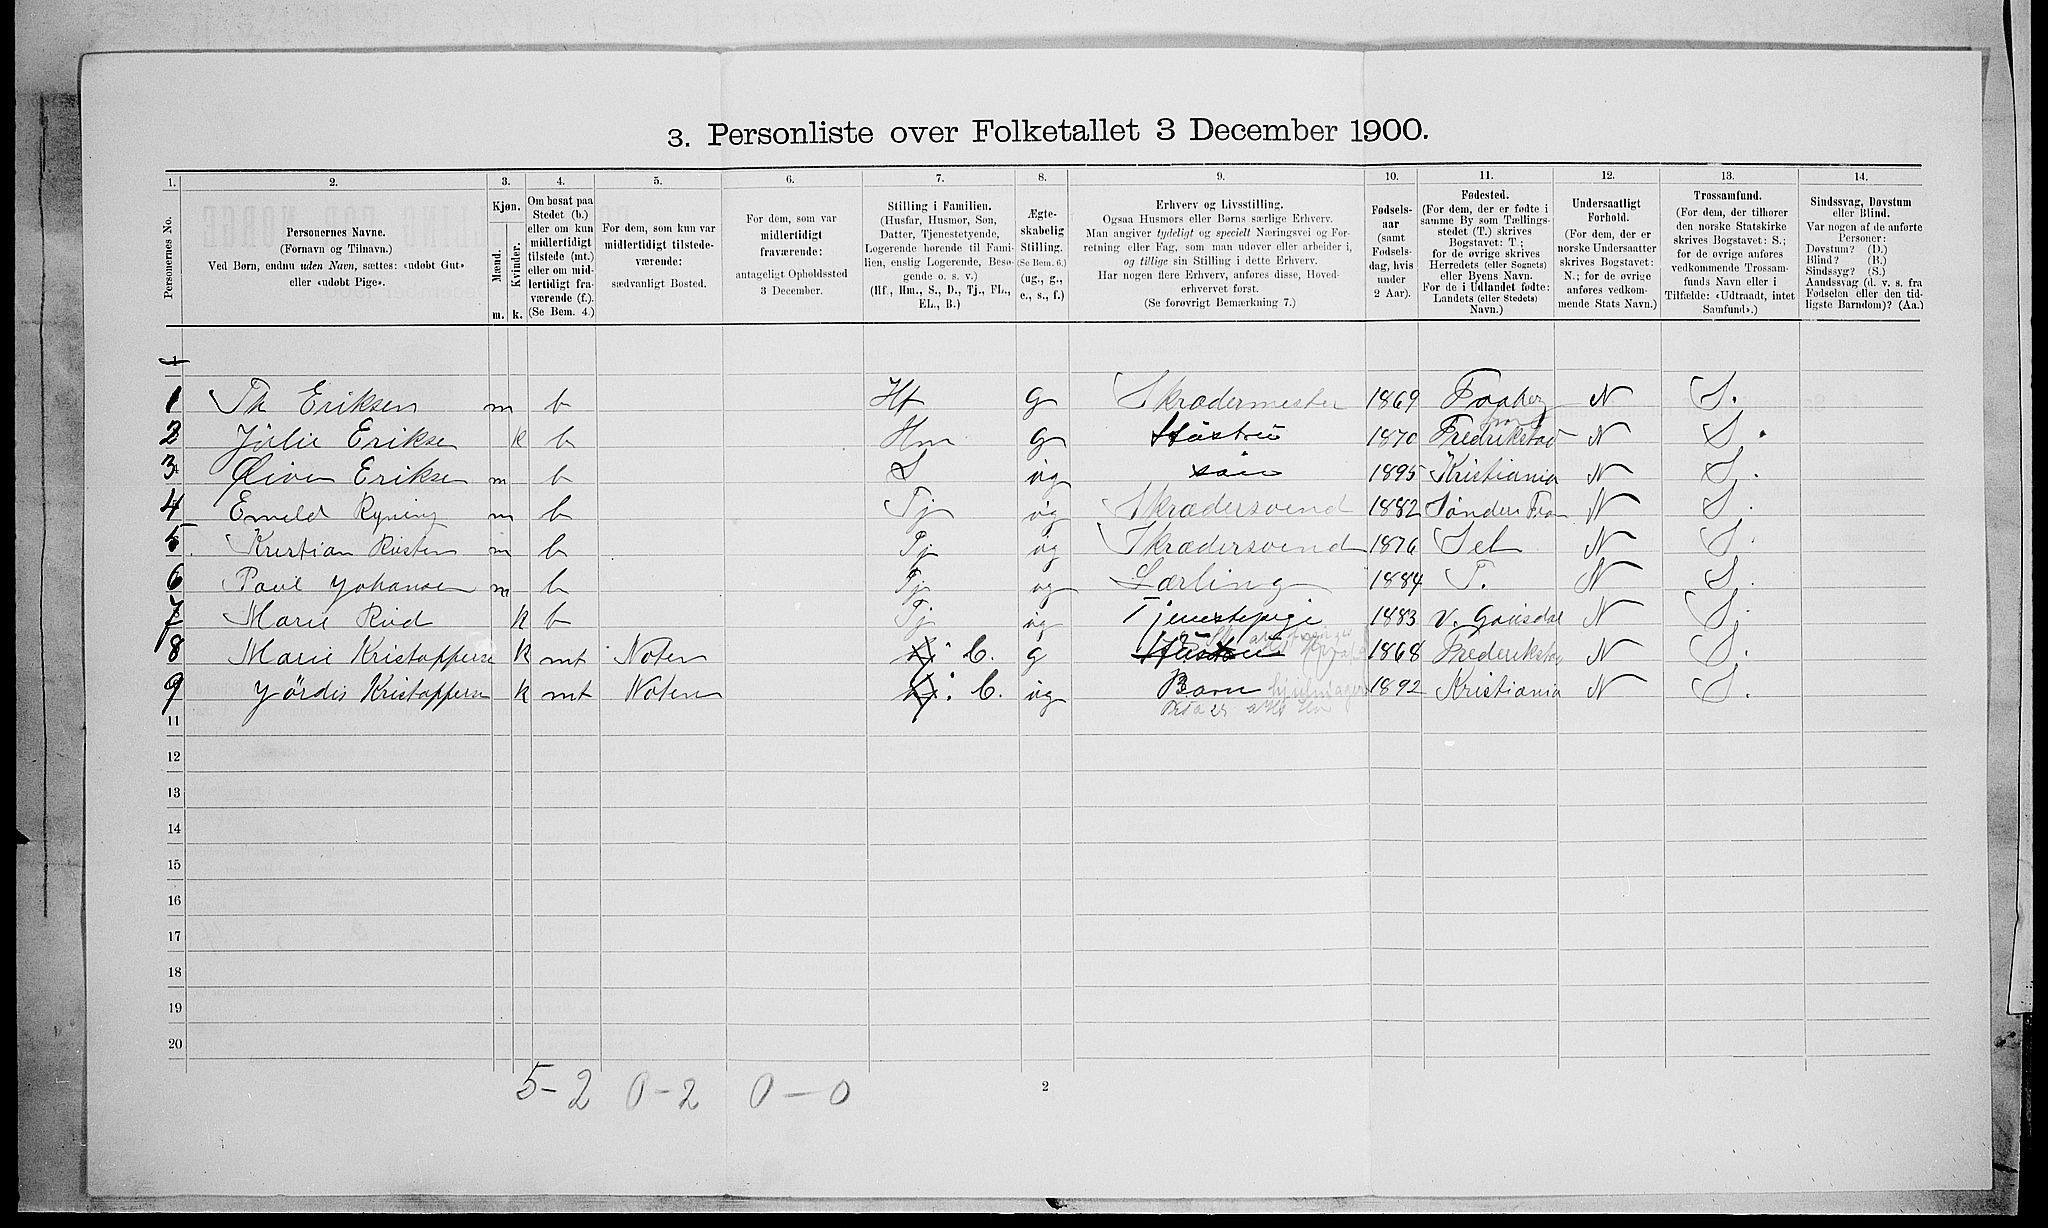 3. Personliste over Folketallet 3 December 1900.
1. 2. 3. 4. 5. 6. 7. 8. 9. 10. 11. 12. 13. 14.
Personernes No.
Personernes Navne.
(Fornavn og Tilnavn.)
Ved Børn, endnu uden Navn, sættes: «udøbt Gut»
eller «udøbt Pige».
Kjøn.
Mænd.
Kvinder.
m. k.
Om bosat paa
Stedet (b.)
eller om kun
midlertidigt
tilstede (mt.)
eller om mid-
lertidigt fra-
værende (f.).
(Se Bem. 4.)
For dem, som kun var
midlertidigt tilstede-
værende:
sædvanligt Bosted.
For dem, som var
midlertidigt
fraværende:
antageligt Opholdssted
3 December.
Stilling i Familien.
(Husfar, Husmor, Søn,
Datter, Tjenestetyende,
Logerende hørende til Fami-
lien, enslig Logerende, Besø-
gende o. s. v.)
(Hf., Hm., S., D., Tj., FL.,
EL., B.)
Ægte-
skabelig
Stilling.
(Se Bem. 6.)
(ug., g.,
e., s., f.)
Erhverv og Livsstilling.
Ogsaa Husmors eller Børns særlige Erhverv.
Man angiver tydeligt og specielt Næringsvei og For-
retning eller Fag, som man udøver eller arbeider i,
og tillige sin Stilling i dette Erhverv.
Har nogen flere Erhverv, anføres disse, Hoved-
erhvervet først.
(Se forøvrigt Bemærkning 7.)
Fødsels-
aar
(samt
Fødsels-
dag, hvis
under
2 Aar).
Fødested.
(For dem, der er fødte i
samme By som Tællings-
stedet (T.) skrives
Bogstavet: T.;
for de øvrige skrives
Herredets (eller Sognets)
eller Byens Navn.
For de i Udlandet fødte:
Landets (eller Stedets)
Navn.)
Undersaatligt
Forhold.
(For dem, der er
norske Undersaatter
skrives Bogstavet:
N.; for de øvrige
anføres vedkom-
mende Stats Navn.)
Trossamfund.
(For dem, der tilhører
den norske Statskirke
skrives Bogstavet: S.;
for de øvrige anføres
vedkommende Trossam-
funds Navn eller i
Tilfælde: «Udtraadt, intet
Samfund».)
Sindssvag, Døvstum
eller Blind.
Var nogen af de anførte
Personer:
Døvstum? (D.)
Blind? (B.)
Sindssyg? (S.)
Aandssvag (d. v. s. fra
Fødselen eller den tid-
ligste Barndom)? (Aa.)
1 Th Eriksen m b Hf g Skrædermester 1869 Faaberg N S.
2 Julie Eriksen k b Hm g Hustru 1870 Fredrikstad N S.
3 Eriksen m b S ug søn 1895 Kristiania N S.
4 Ryning m b Tj ug Skrædersvend 1882 N S.
5 Kristian m b Tj ug Skrædersvend 1876 Sel N S.
6 Paul Johansen m b Tj ug Lærling 1884 T. N S.
7 Marie Rud k b Tj ug Tjenestepige 1883 V. Gausdal N S.
8 Marie Kristoffersen k mt Noten b. g Hustru 1868 Frederikstad N S.
9 Jördis Kristoffersen k mt Noten b. ug Barn 1892 Kristiania N S.
11
12
13
14
15
16
17
18
19
20
5-2 0-2 0-0
2